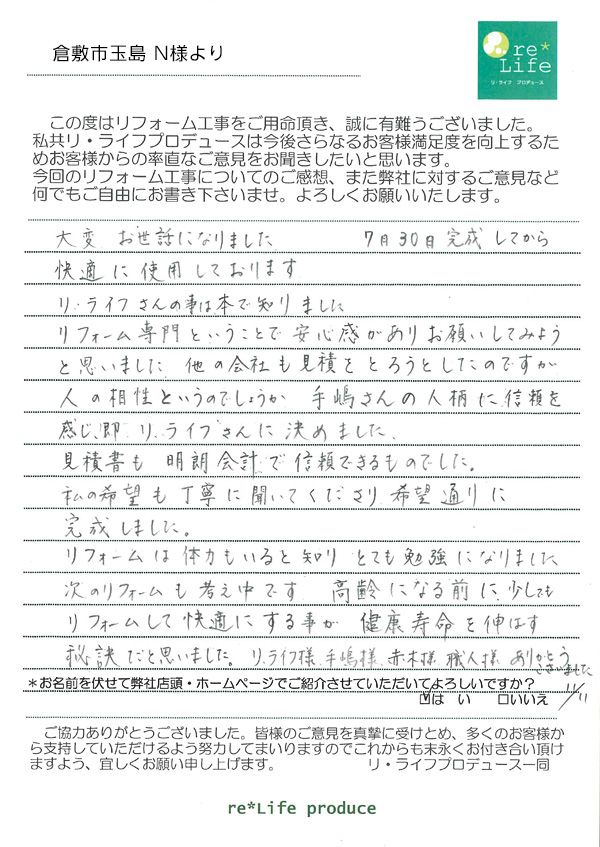 倉敷市玉島 N様より
re*
Life
リ・ライフ プロデュース
この度はリフォーム工事をご用命頂き、誠に有難うございました。
私共リ・ライフプロデュースは今後さらなるお客様満足度を向上するた
めお客様からの率直なご意見をお聞きしたいと思います。
今回のリフォーム工事についてのご感想、また弊社に対するご意見など
何でもご自由にお書き下さいませ。よろしくお願いいたします。
大変 お世話になりました 7月30日完成してから
快適に使用しております
リ・ライフさんの事は本で知りました
リフォーム専門ということで安心感がありお願いしてみよう
と思いました 他の会社も見積をとろうとしたのですが
人の相性というのでしょうか 手嶋さんの人柄に信頼を
感じ、即 リ・ライフさんに決めました、
見積書も 明朗会計で信頼できるものでした。
私の希望も丁寧に聞いてくださり希望通りに
完成しました。
リフォームは体力もいると知り とても勉強になりました
次のリフォームも考え中です 高齢になる前に、少しでも
リフォームして快適にする事が 健康寿命を伸はす
秘訣だと思いました。リ・ライフ様、手嶋様、赤木様、職人様、ありがとう
ございました
*お名前を伏せて弊社店頭・ホームページでご紹介させていただいてよろしいですか?
☑はい □いいえ 11/11
ご協力ありがとうございました。皆様のご意見を真摯に受けとめ、多くのお客様か
ら支持していただけるよう努力してまいりますのでこれからも末永くお付き合い頂け
ますよう、宜しくお願い申し上げます。 リ・ライフプロデュース一同
re*Life produce